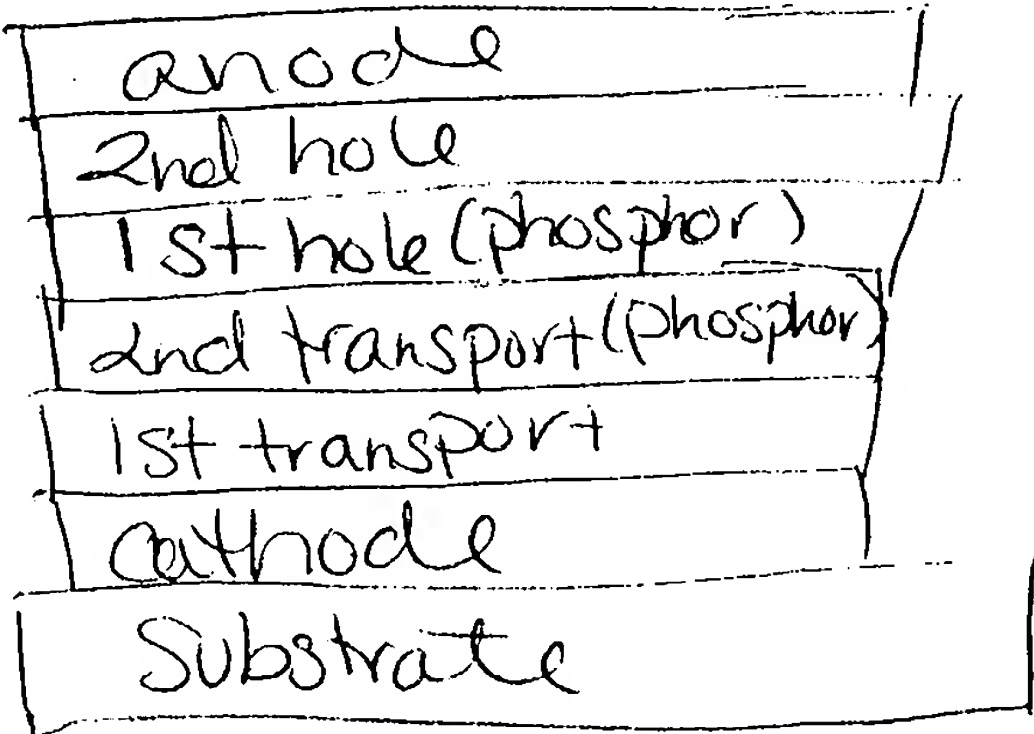 anode
2nd hole
1st hole (phosphor)
2nd transport (phosphor)
1st transport
cathode
Substrate